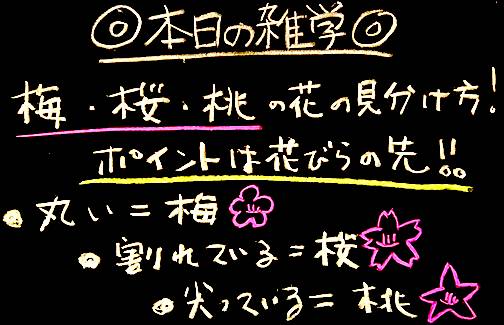 ◎本日の雑学◎
梅・桜・桃の花の見分け方！
ポイントは花びらの先!!
●丸い＝梅
●割れている＝桜
●尖っている＝桃